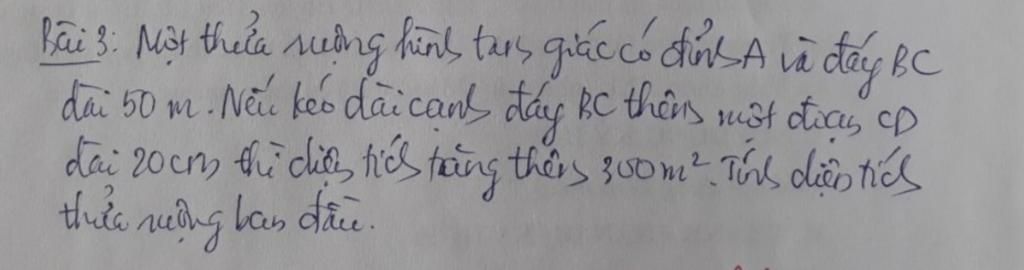 Bài 3: Một thửa ruộng hình tam giác có đỉnh A và đáy BC
dài 50 m. Nếu kéo dài cạnh đáy BC thêm một đoạn CD
dài 20cm thì diện tích tăng thêm 300m². Tính diện tích
thửa ruộng ban đầu.